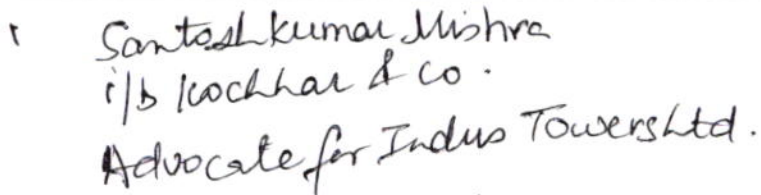 Santosh kumar Mishra
i/b Kochhar & Co.
Advocate for Indus Towers Ltd.